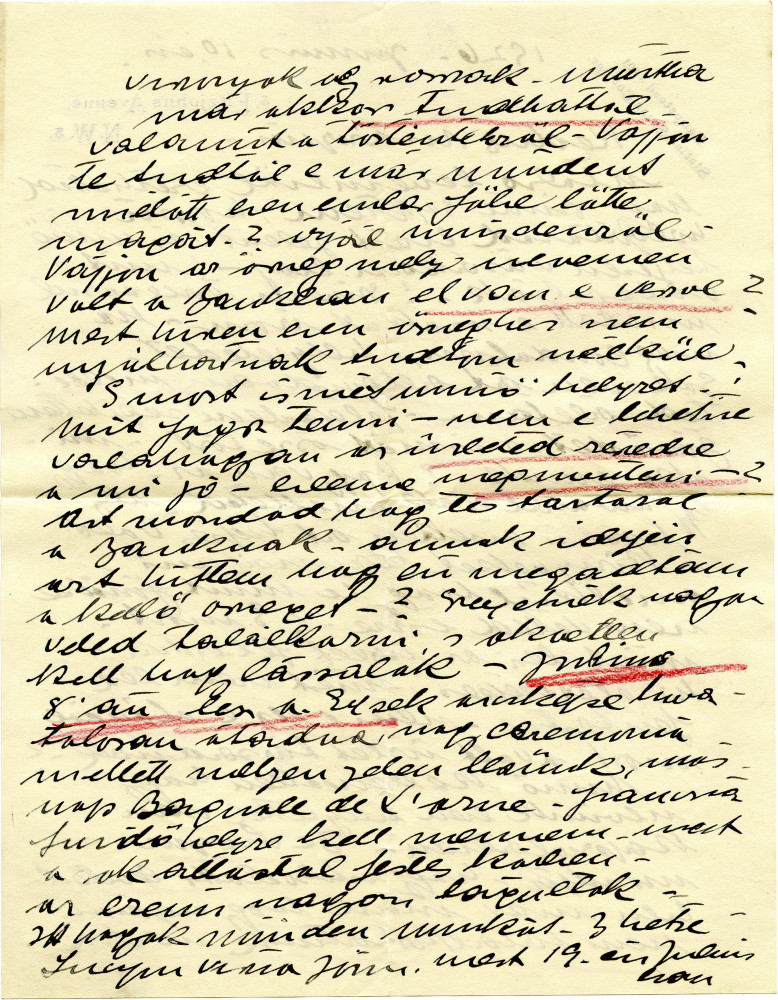 viszonyok oly rosszak - mintha
már akkor tudhattál
valamit a történtekről - Vajjon
te tudtál e már mindent
mielőtt ezen ember főbe lőtte
magát - ? írjál mindenről -
Vajjon az összeg mely nevemen
volt a Bankban el van e veszve ?
mert hiszen ezen összeghez nem
nyúlhatnak tudtom nélkül -
S most ismét minő helyzet - !
Mit fogsz tenni - nem e lehetne
valahogyan az üzleted részedre
a mi jó - benne megmenteni - ?
Azt mondod hogy te tartozol
a Banknak - annak idején
azt hittem hogy én megadtam
a kellő összeget - ? Szeretnék nagyon
veled találkozni, s okvetlen
kell hogy lássalak - Június
8'án lesz a Érsek arczképe hiva-
talosan átadva, nagy ceremonia
mellett melyen jelen leszünk, más-
nap Bagnole de L'orne - francia
fürdőhelyre kell mennem - mert
a sok állástól festés közben -
az ereim nagyon tágultak -
Itt hagyok minden munkát - 3 hétre -
Lucy vissza jönn. mert 19-én Június
ban